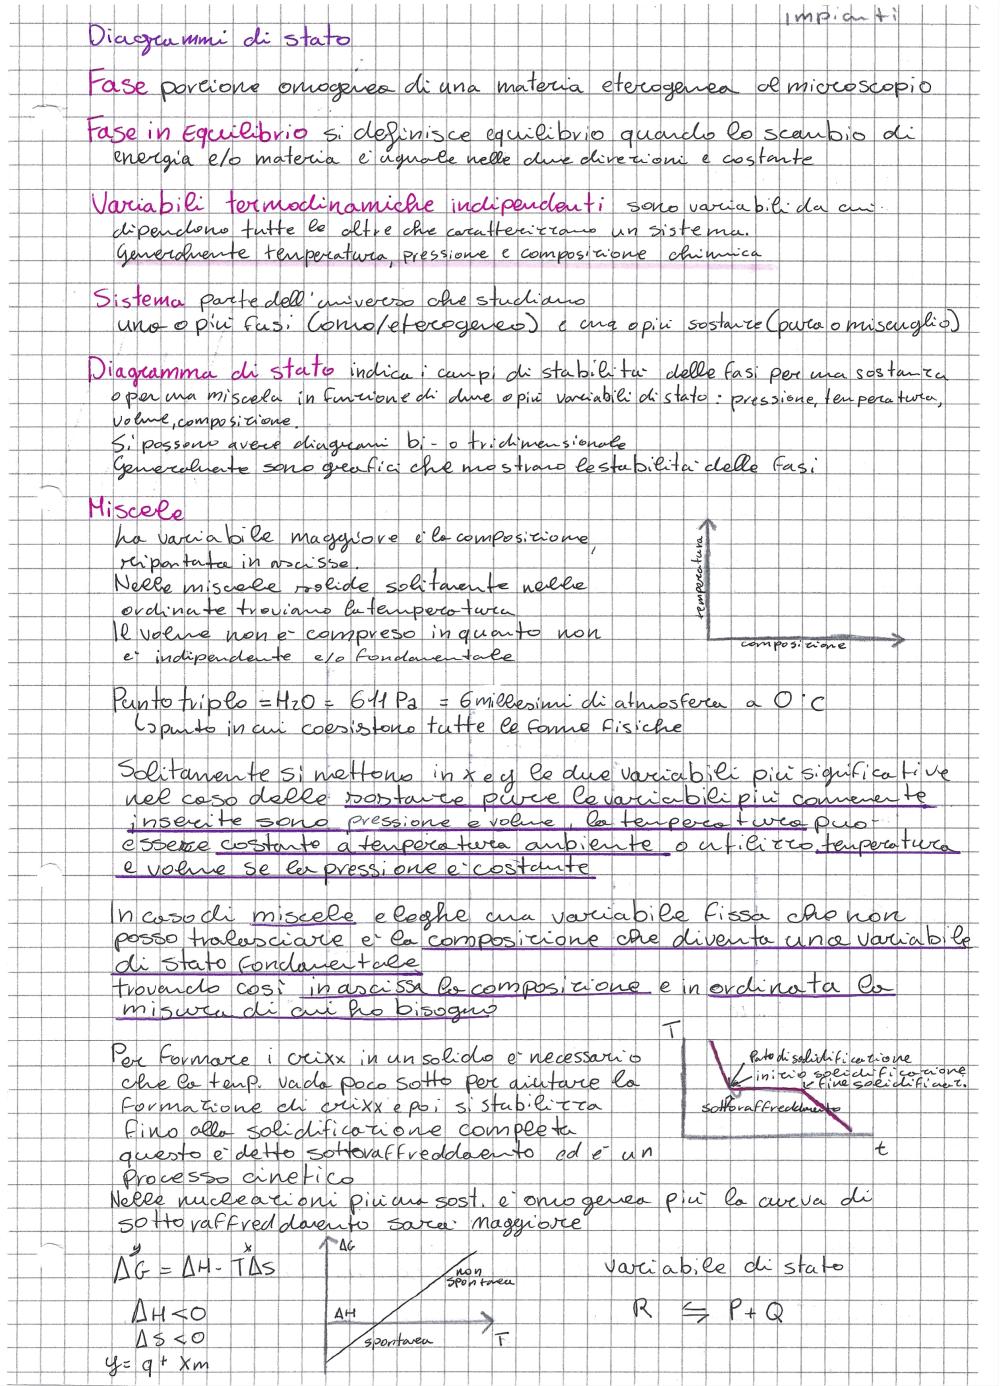 impianti
Diagrammi di stato
Fase porzione omogenea di una materia eterogenea al microscopio
Fase in Equilibrio si definisce equilibrio quando lo scambio di
energia e/o materia è uguale nelle due direzioni e costante
Variabili termodinamiche indipendenti sono variabili da cui
dipendono tutte le altre che caratterizzano un sistema.
Generalmente temperatura, pressione e composizione chimica
Sistema parte dell'universo che studiano
uno o più fasi (omo/eterogeneo) e una o più sostanze (pura o miscuglio)
Diagramma di stato indica i campi di stabilità delle fasi per una sostanza
o per una miscela in funzione di due o più variabili di stato: pressione, temperatura,
volume, composizione.
Si possono avere diagrami bi- o tridimensionale
Generalmente sono grafici che mostrano le stabilità delle fasi
Miscele
la variabile maggiore è la composizione,
riportata in ascisse.
Nelle miscele solide solitamente nelle
ordinate troviamo la temperatura
Il volume non è compreso in quanto non
è indipendente e/o fondamentale
temperatura
composizione
Punto triplo = H₂O = 611 Pa = 6 millesimi di atmosfera a 0°C
↳ punto in cui coesistono tutte le forme fisiche
Solitamente si mettono in x e y le due variabili più significative
nel caso delle sostanze pure le variabili più conveniente
inserite sono pressione e volume, la temperatura può
essere costante a temperatura ambiente o utilizzo temperatura
e volume se la pressione è costante
In caso di miscele e leghe una variabile fissa che non
posso tralasciare è la composizione che diventa una variabile
di stato fondamentale
trovando così in ascissa la composizione e in ordinata la
misura di cui ho bisogno
Per formare i crixx in un solido è necessario
che la temp. vada poco sotto per aiutare la
formazione di crixx e poi si stabilizza
fino alla solidificazione completa
questo è detto sottoraffreddamento ed è un
processo cinetico
T
Puto di solidificazione
inizio solidificazione
fine solidificaz.
sottoraffreddamento
t
Nelle nucleazioni più una sost. è omogenea più la curva di
sottoraffreddamento sarà maggiore
y x
ΔG = ΔH - TΔS
ΔH < 0
ΔS < 0
y = q + xm
ΔG
non
spontanea
ΔH
spontanea
T
variabile di stato
R ⇆ P + Q